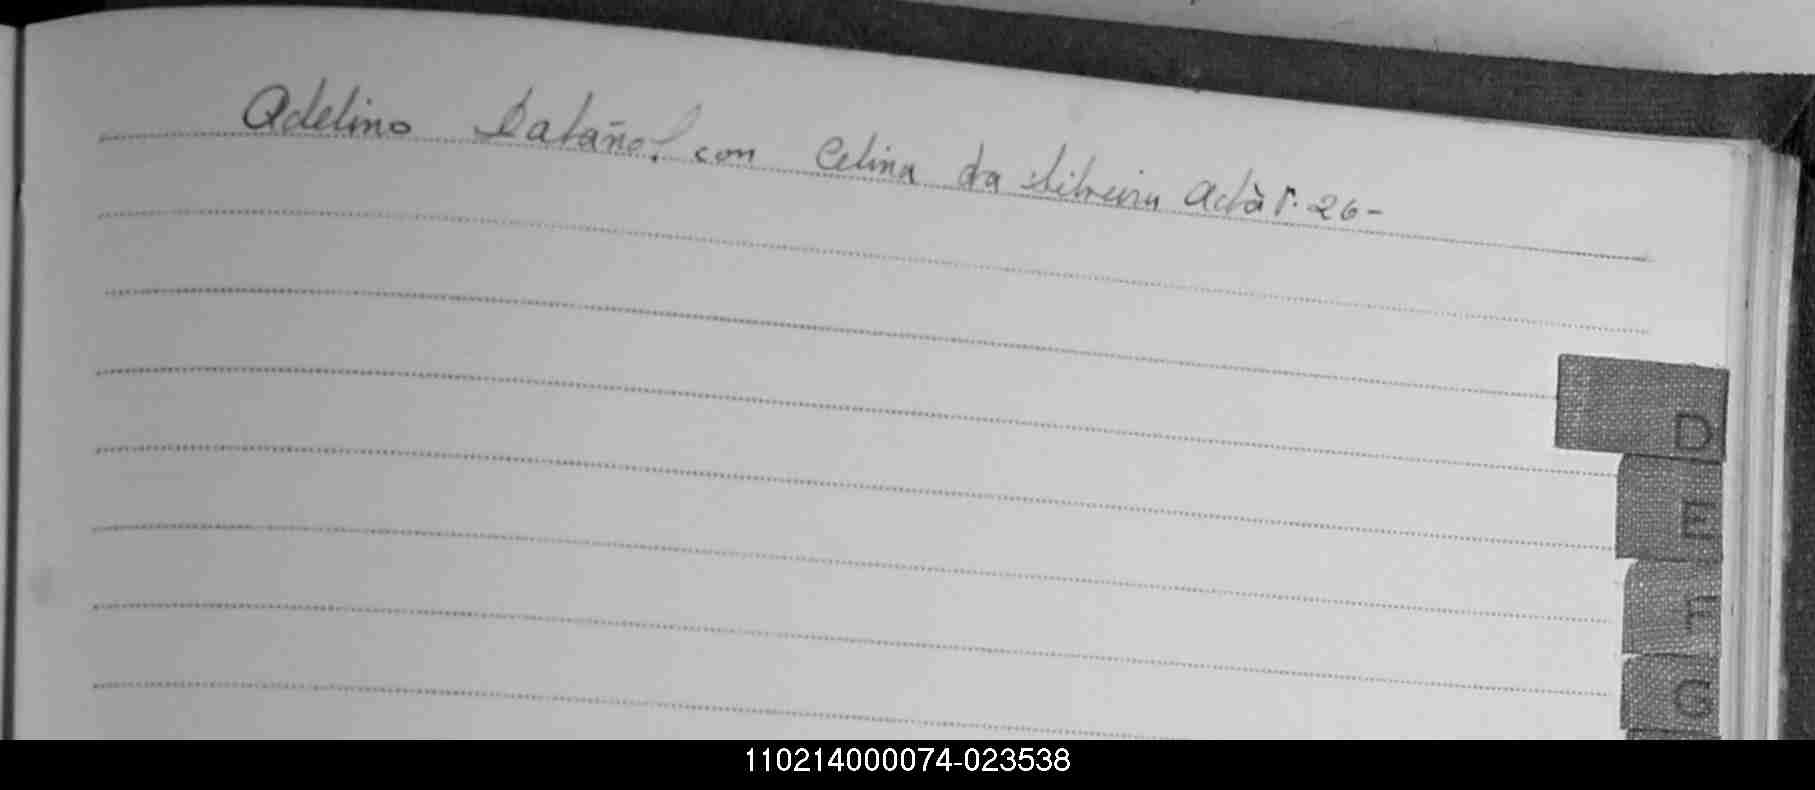 Adelino Datañol con Celina da Silveira Acta nº. 26-
D
E
F
G
110214000074-023538